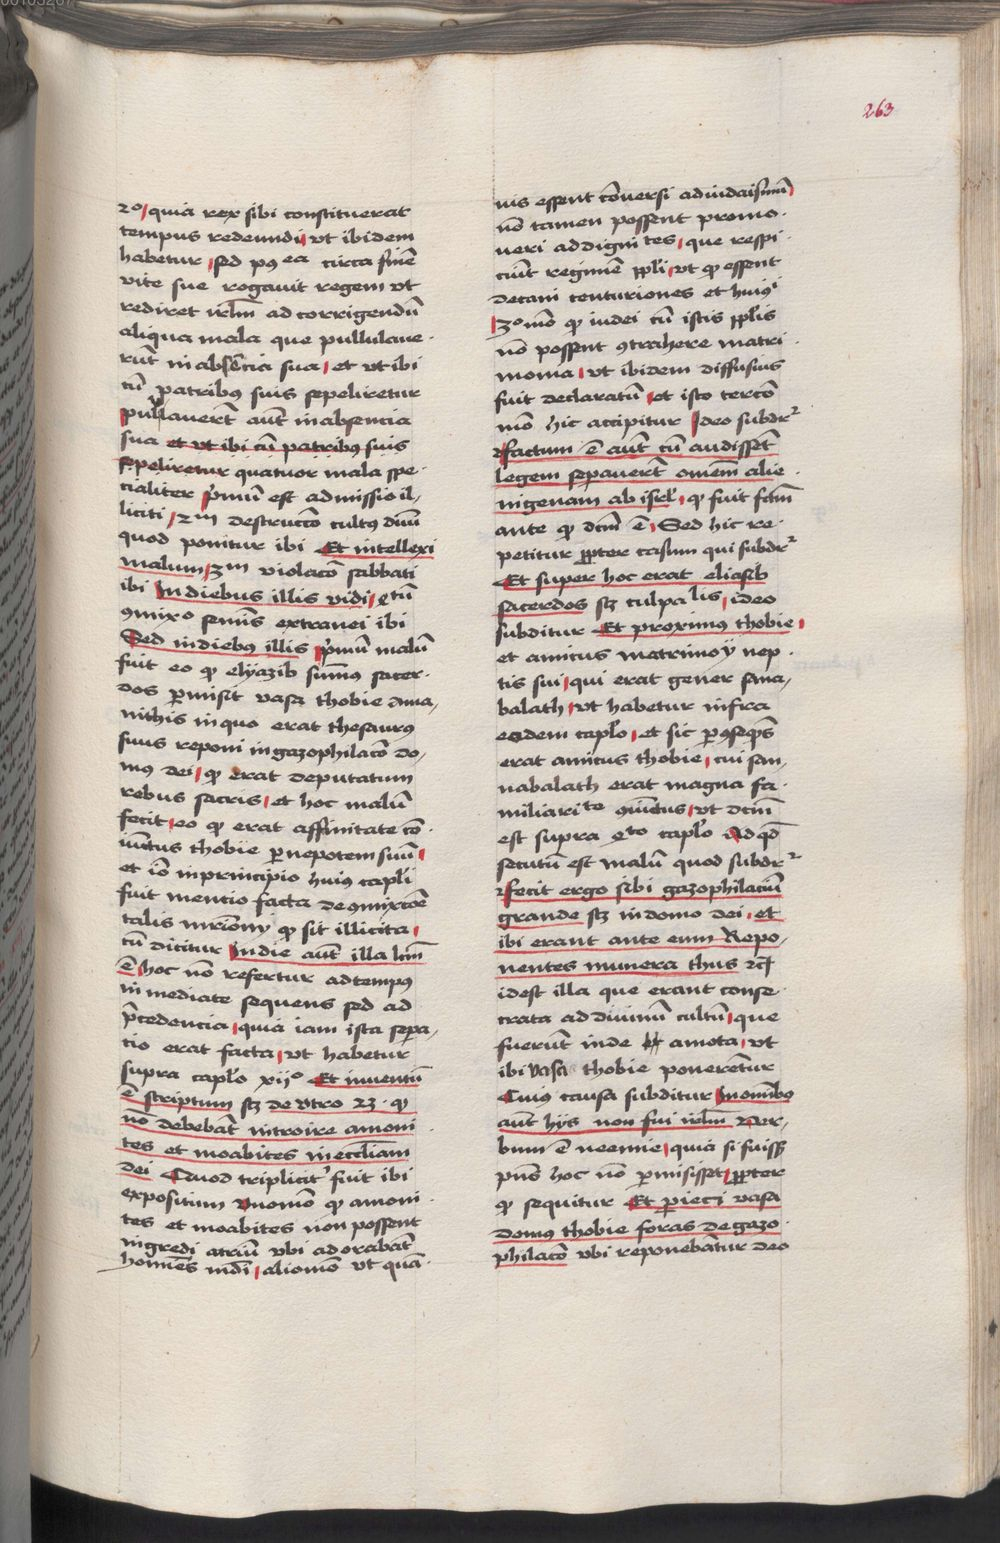 263
2º quia rex sibi constituerat
tempus redeundi vt ibidem
habetur sed pꝰ ea circa finē
vite sue rogauit regem vt
rediret irlm̄ ad corrigendū
aliqua mala que pullulaue
rūt in absēcia sua et vt ibi
cū patribꝰ suis sepeliretur
pullauerūt aūt in absencia
sua et vt ibi cū patribus suis
sepeliretur quatuor mala spe
cialiter pͥmū est admissio il
liciti 2m destructō cultꝰ diuī
quod ponitur ibi Et intellexi
malum 3m violacō sabbati
ibi In diebus illis vidi qrtū
ꝯmixº semīs extranei ibi
Sed in diebꝰ illis pͥmū malū
fuit eo qꝫ elyazib sūmꝰ sacer
dos ꝑmisit vasa thobie ama
nithis in quo erat thesaurꝰ
suus reponi in gazophilacō do
mꝰ dei qꝫ erat deputatum
rebus sacris et hoc malū
fecit eo qꝫ erat affinitate cō
iūctus thobie ꝑ nepotem suū
et iō in principio huiꝰ capli
fuit mentio facta de ꝯmixcōe
talis mr̄iony qꝫ sit illicita
cū dicitur In die aūt illa lcm̄
ē hoc nō refertur ad tempꝰ
in mediate sequens sed ad
p̄cedencia quia iam ista sepa
tio erat facta vt habetur
supra caplo xijº Et inuentū
ē scriptum sꝫ deutro 23 qꝫ
nō debebāt introire amoni
tes et moabites in eccl̄iam
dei Quod triplicitͬ fuit ibi
expositum vno mō qꝫ amoni
tes et moabites non possent
ingredi atriū vbi adorabāt
homīes iudī alio mō vt quā
uis essent cōuersi ad iudaismū
nō tamen possent promo
ueri ad dignitates que respi
ciūt regimē ppli vt qꝫ essent
decani centuriones et huiꝰi
3º mō qꝫ iudei cū istis pplis
nō possent ꝯtrahere matri
monia vt ibidem diffusius
fuit declaratū et isto tercō
mō hic accipitur Ideo subdr
factum ē aūt cū audissēt
legem separauert omem alie
nigenam ab isrl qꝫ fuit fcm̄
ante qꝫ dcm̄ ē Sed hic re
petitur ꝓpter casum qui subdr
Et super hoc erat eliasib
sacerdos sꝫ culpalis ideo
subditur Et proximus thobie
et amicus matrimoij nep
tis sui qui erat gener sana
balath vt habetur infra
eodem caplo et sic ꝑ ꝯseqns
erat amicus thobie cui san
nabalath erat magna fa
miliarite iūctus vt dcm̄
est supra qrto caplo Ad qd̄
secutū est malū quod subdr
fecit ergo sibi gazophilaciū
grande sꝫ in domo dei et
ibi erant ante eum Repo
nentes munera thus 2c
id est illa que erant conse
crata ad diuinū cultū que
fuerūt inde amota vt
ibi vasa thobie ponerētur
Cuiꝰ causa subditur In omībo
aūt hijs non fui irlm̄ Ver
bum ē neemie quia si fuissꝫ
pn̄s hoc nō ꝑmisisset ꝓpter
qꝫ sequitur Et ꝓieci vasa
domus thobie foras de gazo
philacō vbi reponebātur deo